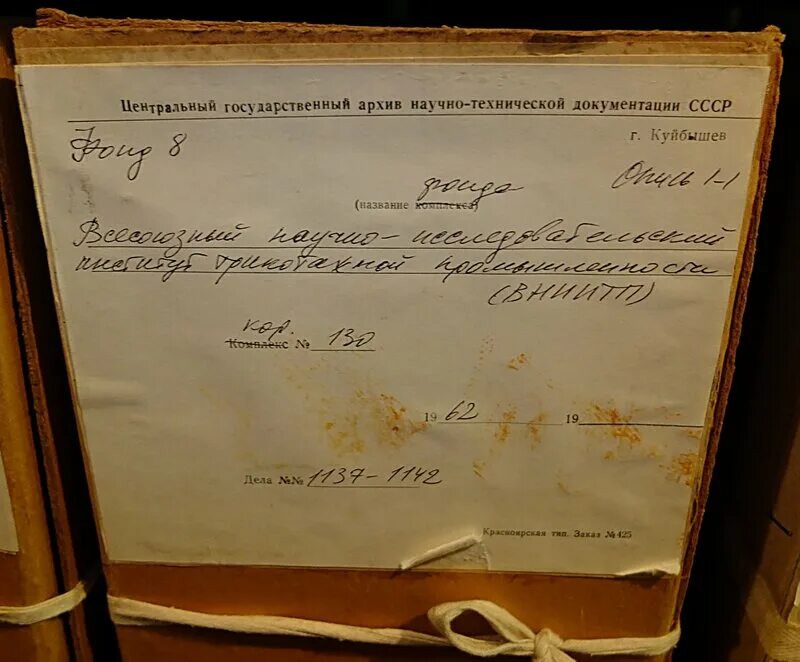 Центральный государственный архив научно-технической документации СССР
г. Куйбышев
Фонд 8
Опись 1-1
фонда
(название комплекса)
Всесоюзный научно-исследовательский
институт трикотажной промышленности
(ВНИИТП)
кор.
Комплекс № 130
1962 19
Дела №№ 1137-1142
Красноярская тип. Заказ № 425